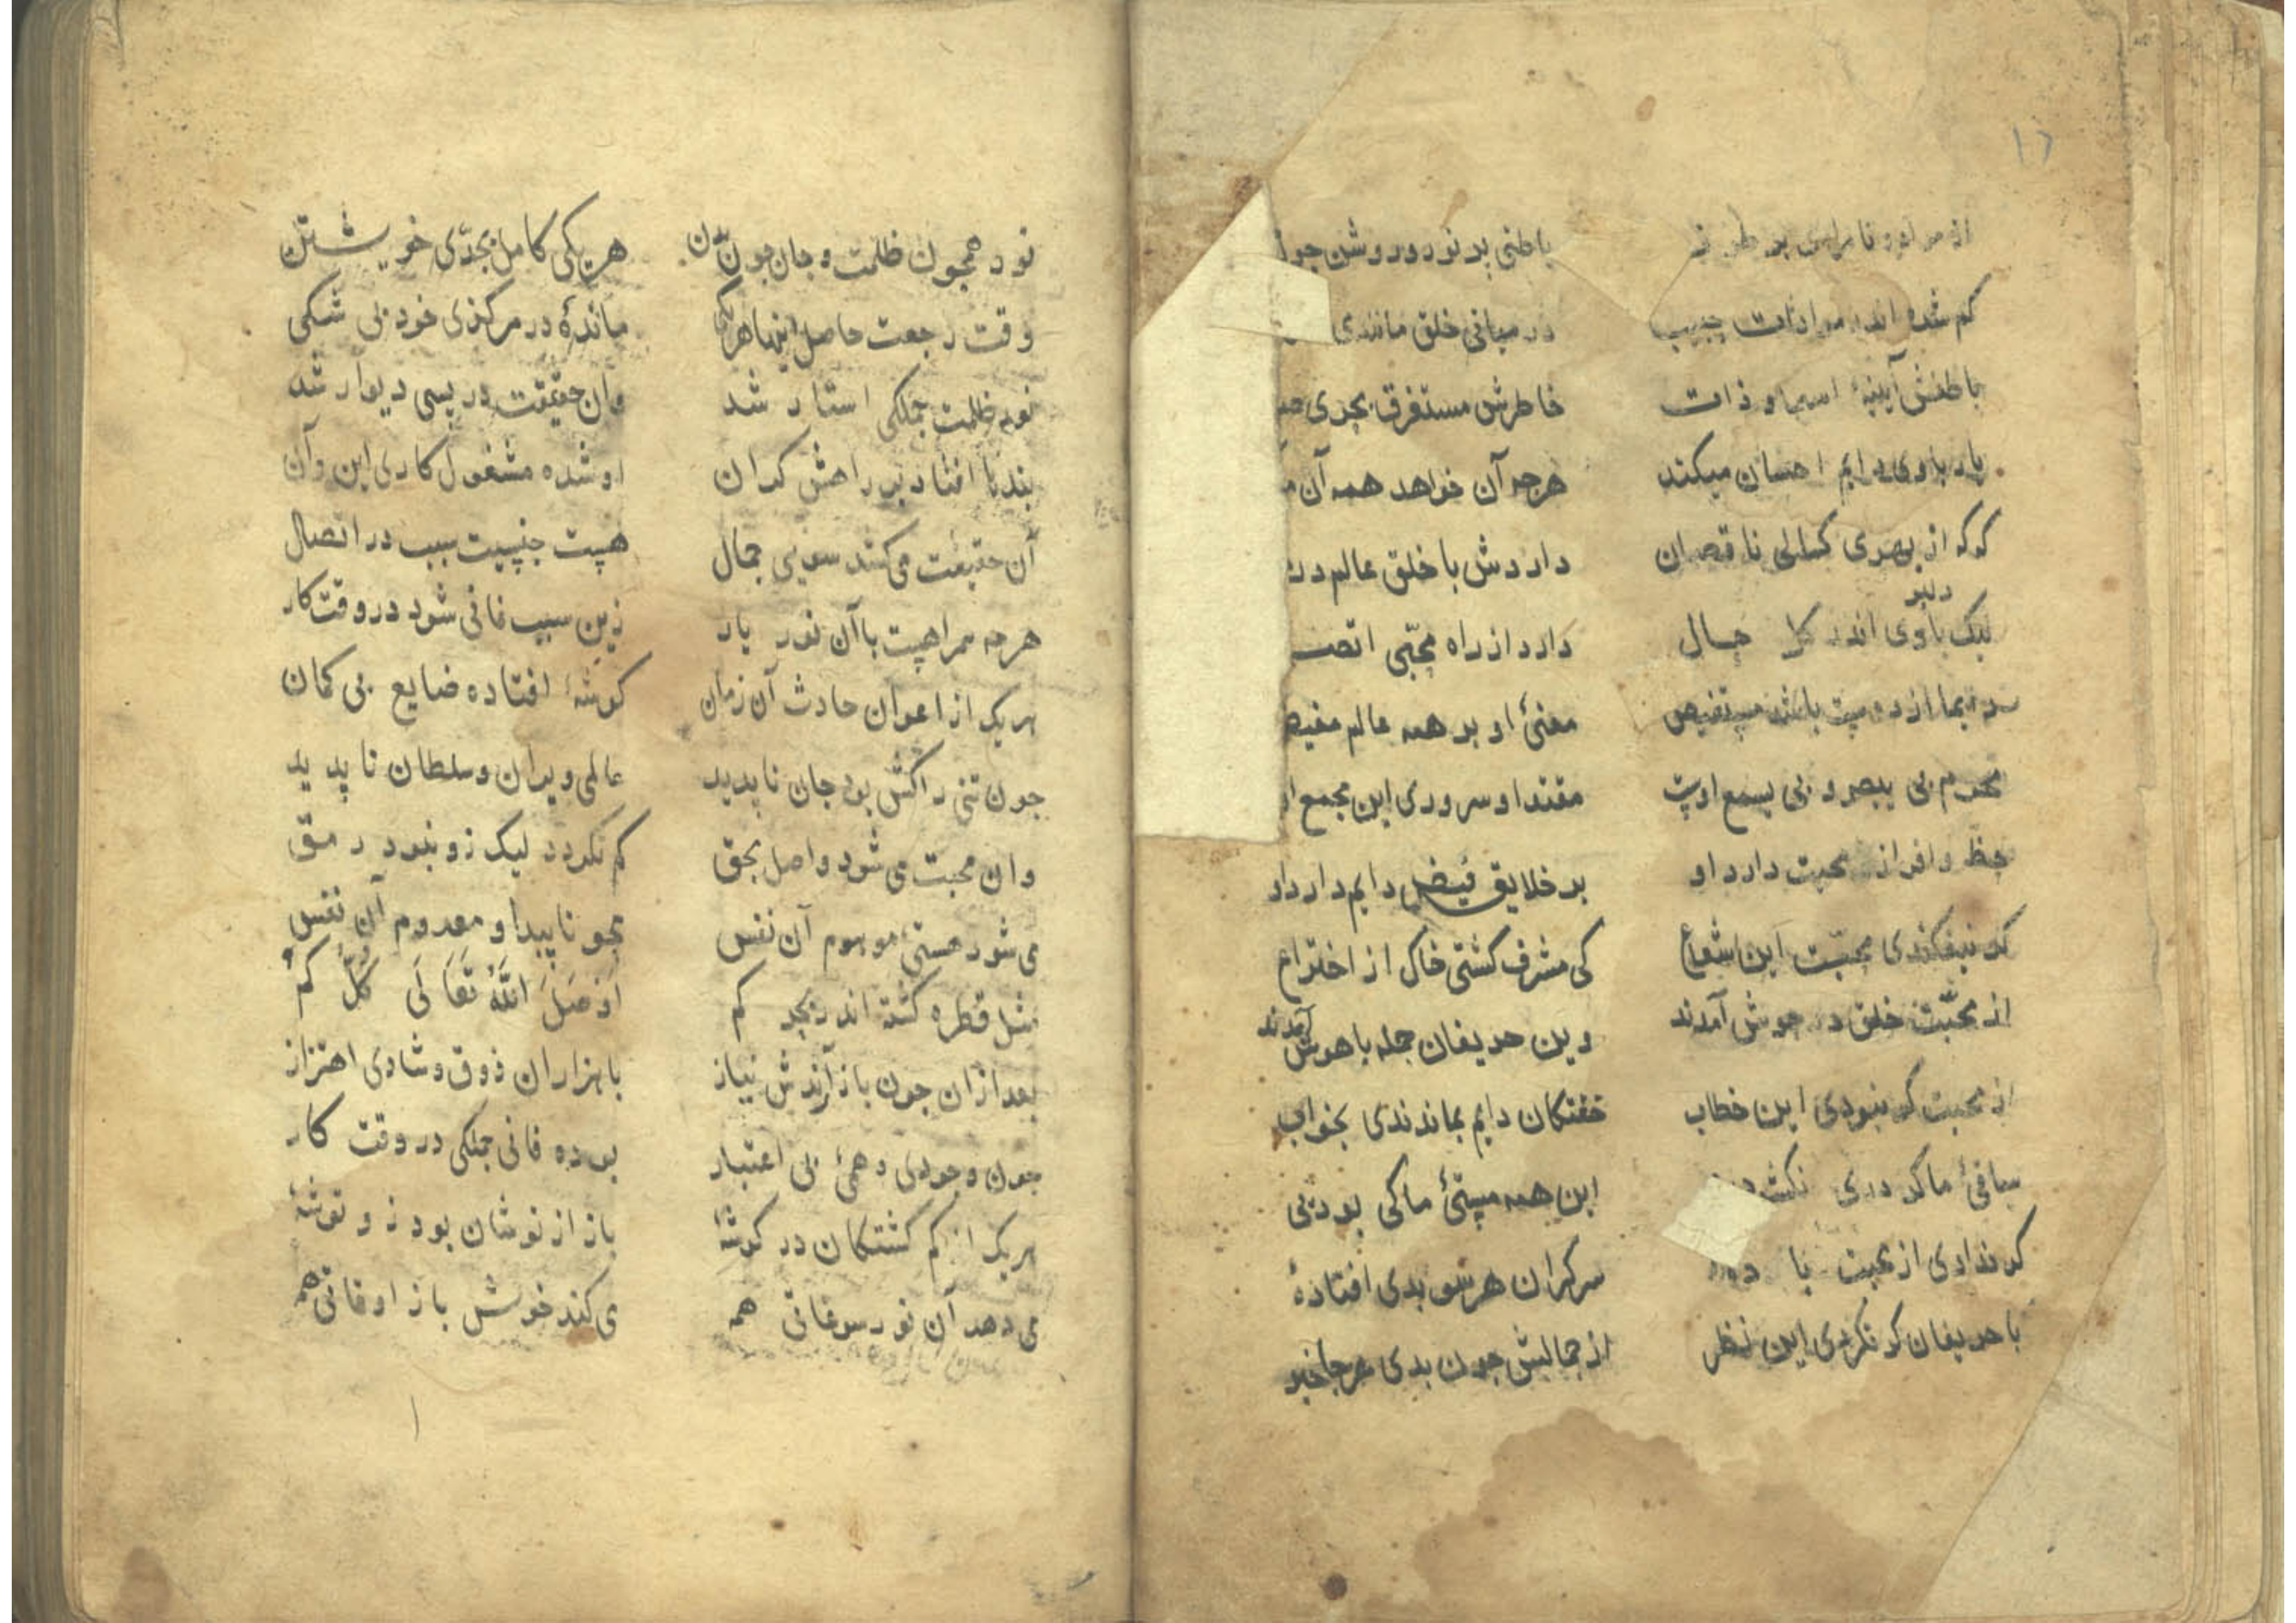 ۱۲
باطنی پر نور و روشن چو
کم شده اندر مرادات حبیب در میانی خلق مانندی
باطنش آیینهٔ اسما و ذات خاطرش مستغرق بحری
یار با وی دایم احسان میکند هرچه آن خواهد همه آن
کو که از بهری کمالی ناقصان داردش با خلق عالم در
دلبر
لیک باوی اندر کل حال دارد از راه محبّی اتص
از دوست باشد مستفیض معنیٔ او بر همه عالم مفیض
محرم بی یبصر و بی یسمع اوست مقتدا و سروری این مجمع او
حظ وافر از محبت دارد او بر خلایق فیض دایم دارد او
کر نیفکندی محبّت این شعاع کی مشرف کشتی خاک از اختراع
از محبّت خلق در جوش آمدند وین حریفان جمله باهوش آمدند
از محبت کر نبودی این خطاب خفتکان دایم بماندندی بخواب
ساقیٔ ما کر دری این همه مستیٔ ما کی بود بی
کر ندادی از محبت با سرکران هر سو بدی افتادهٔ
با حریفان کر نکردی این نظر از جمالش چون بدی هر جا خبر
نور همچون ظلمت و جان چون تن هر یکی کامل بحدّی خویشتن
وقت رجعت حاصل اینها هر یکی ماندهٔ در مرکزی خود بی شکی
نور ظلمت جملکی استار شد وان حقیقت در پسی دیوار شد
بند پا افتاد بر راهش کران او شده مشغول کاری این و آن
آن حقیقت می کشد سویی جمال هست جنسیت سبب در اتصال
هرچه همراهست با آن نور یار زین سبب فانی شود در وقت کار
هر یک از اعوان حادث آن زمان کوشهٔ افتاده ضایع بی کمان
چون تنی راکش بود جان ناپدید عالمی ویران و سلطان ناپدید
وان محبت می شود واصل بحق کم نکردد لیک زو نبود رمق
می شود هستی موهوم آن نفس محو ناپیدا و معدوم آن نفس
مثل قطره کشته اندر بحر کم اَوْصَلَ اللّٰهُ تَعَالَی کُلَّکُم
بعد ازان چون باز آرندش نیاز با هزاران ذوق و شادی اهتزاز
چون وجودی وهمیٔ بی اعتبار بوده فانی جملکی در وقت کار
هر یک از کم کشتکان در کوشهٔ باز از نوشان بود زو توشهٔ
می دهد آن نور سوغاتی همه ی کند خوش باز اوقاتی همه